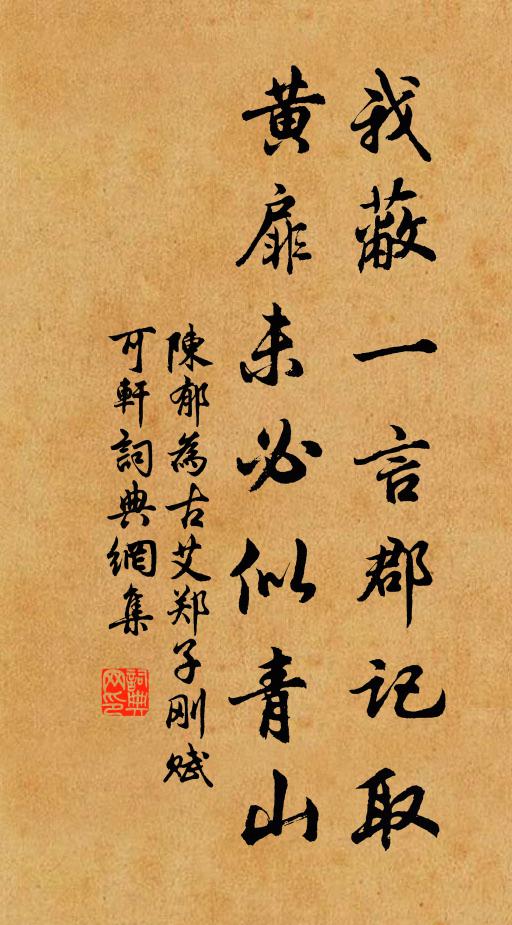 我蔽一言郡记取
黄扉未必似青山
陳郁為古艾郑子刚赋
可軒詞典網集
詞典网印